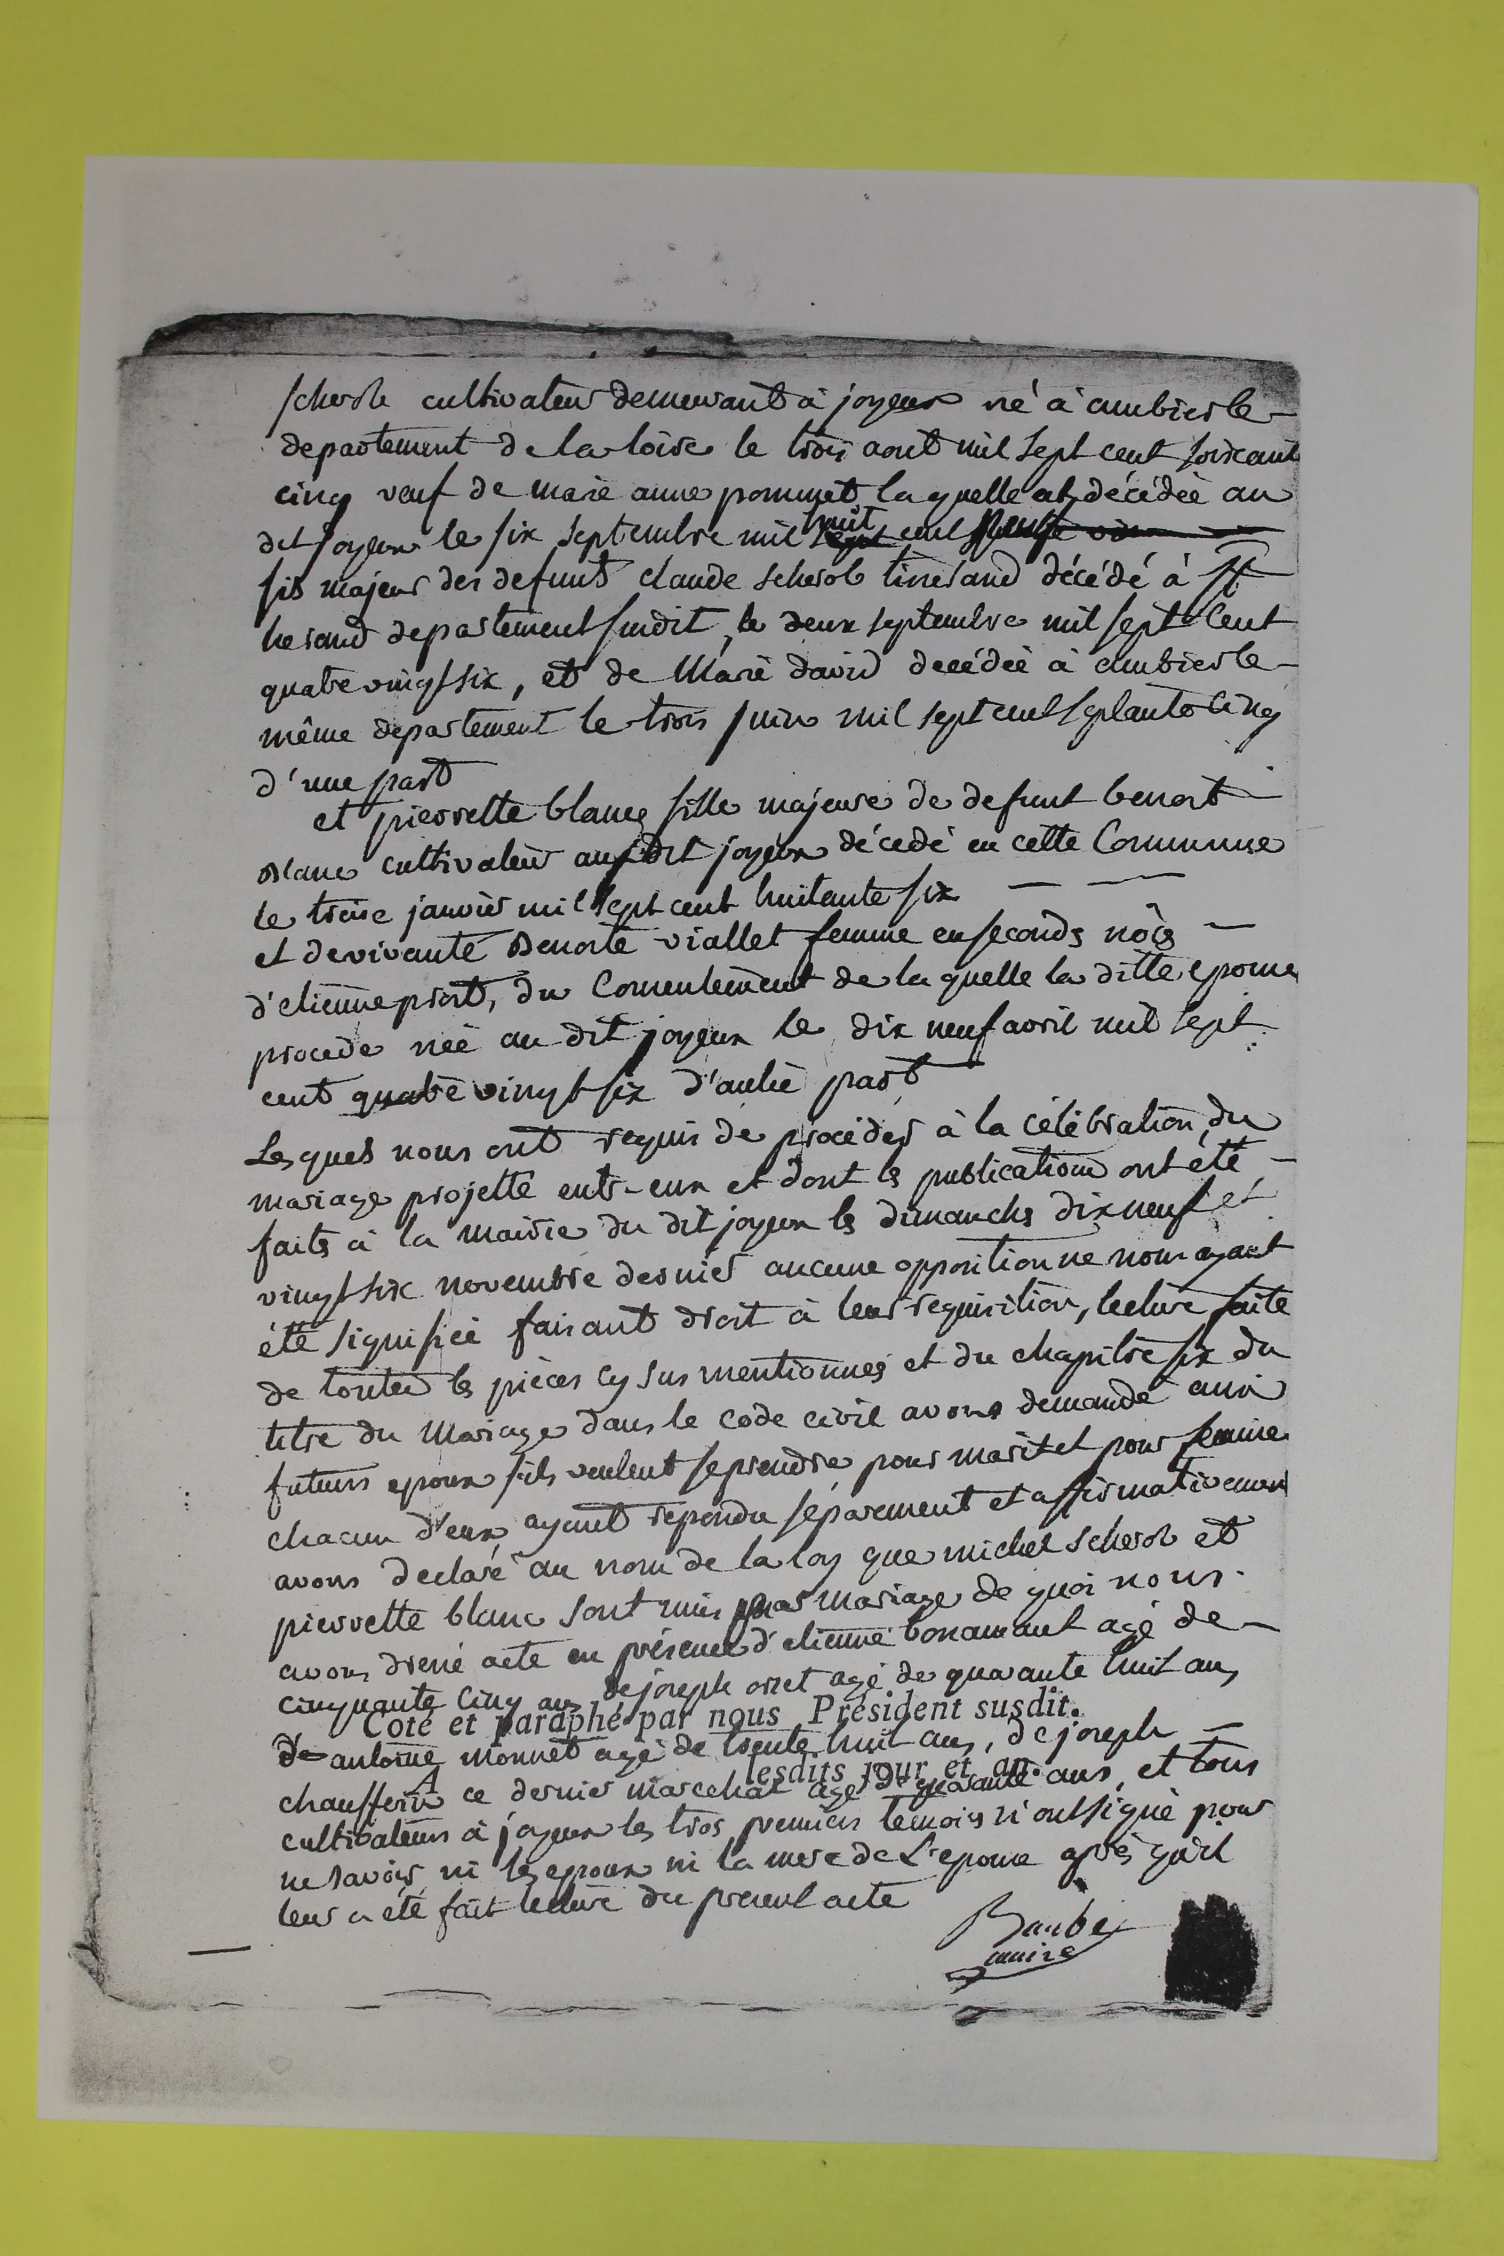 scherob cultivateur demeurant à joyeux né à ambierle
departement de la loire le trois aout mil sept cent soixante
cinq veuf de marie anne pommet la quelle est décédée au
dit joyeux le six septembre mil huit sept cent
fils majeur des defunts claude scherob tisserand décédé à St
herand departement susdit, le deux septembre mil sept Cent
quatre vingt six, et de Marie david decédée à ambierle
même departement le trois juin mil sept cent septante Cinq
d'une part
et pierrette blanc fille majeure de defunt benoit
Blanc cultivateur au dit joyeux décedé en cette Commune
le treise janvier mil sept cent huitante six
et de vivante Benoite viallet femme en seconds nôces
d'etienne prost, du Consentement de la quelle la ditte epouse
procede née au dit joyeux le dix neuf avril mil sept
cent quatre vingt six d'autre part
Les quels nous ont requis de procéder à la célébration du
mariage projetté entr-eux et dont les publications ont été
faites à la mairie du dit joyeux les dimanches dix neuf et
vingt six novembre dernier aucune opposition ne nous ayant
été signifiée faisant droit à leur requisition, lecture faite
de toutes les pièces cy sus mentionnés et du chapitre six du
titre du Mariage dans le code civil avons demandé aux
futurs epoux s'ils veulent se prendre pour mari et pour femme
chacun d'eux ayant repondu séparement et affirmativement
avons declaré au nom de la loy que michel scherob et
pierrette blanc sont unis par mariage de quoi nous
avons dressé acte en présence d'etienne bonamant agé de
cinquante cinq ans, de joseph orset agé de quarante huit ans
Coté et paraphé par nous Président susdit.
De antoine monnet agé de trente huit ans, de joseph
lesdits jour et an.
chauffern ce dernier marechal agé de quarante ans, et tous
cultivateurs à joyeux les trois premiers temoins n'ont signé pour
ne savoir ni les epoux ni la mere de L'epouse après qu'il
leur a été fait lecture du present acte
Baube
maire